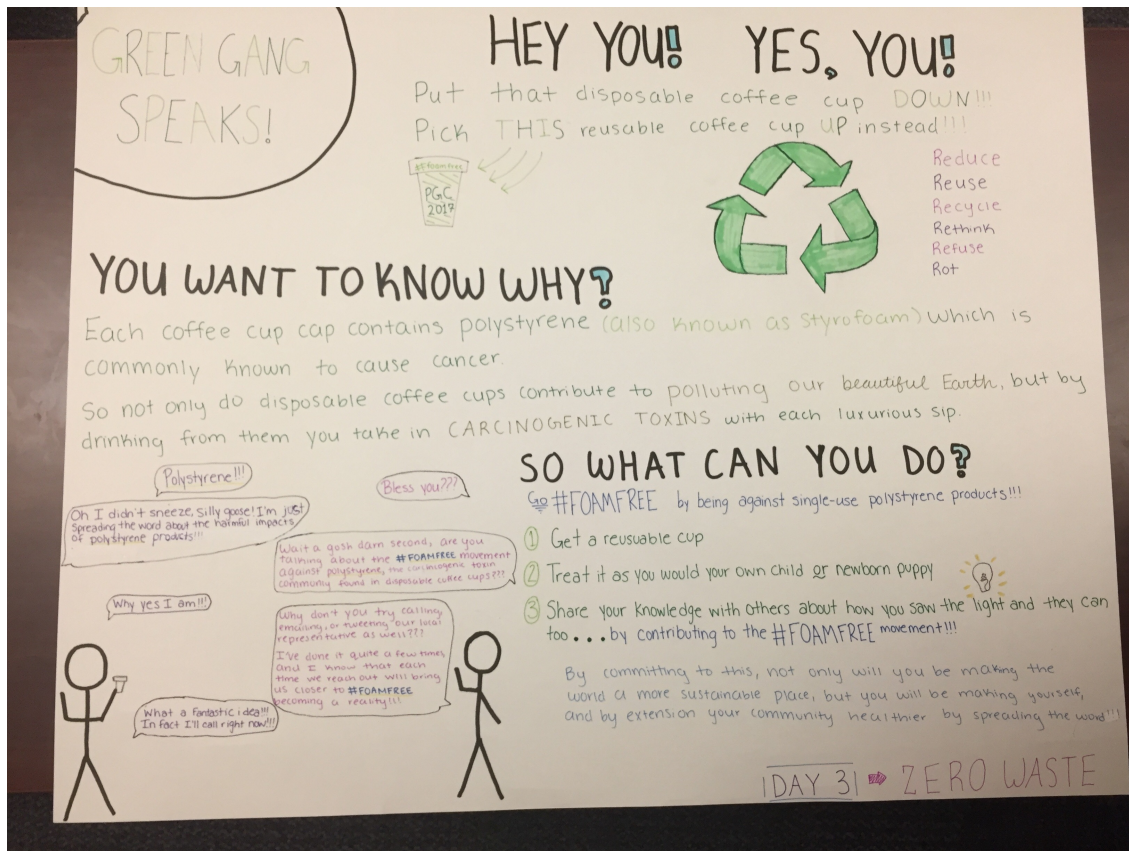 GREEN GANG
SPEAKS!
HEY YOU! YES, YOU!
Put that disposable coffee cup DOWN!!!
Pick THIS reusable coffee cup UP instead!!!
#foamfree
PGC
2017
Reduce
Reuse
Recycle
Rethink
Refuse
Rot
YOU WANT TO KNOW WHY?
Each coffee cup cap contains polystyrene (also known as Styrofoam) which is
commonly known to cause cancer.
So not only do disposable coffee cups contribute to polluting our beautiful Earth, but by
drinking from them you take in CARCINOGENIC TOXINS with each luxurious sip.
Polystyrene!!!
Bless you???
Oh I didn't sneeze, silly goose! I'm just
spreading the word about the harmful impacts
of polystyrene products!!!
Wait a gosh darn second, are you
talking about the #FOAMFREE movement
against polystyrene, the carcinogenic toxin
commonly found in disposable coffee cups???
Why yes I am!!!
Why don't you try calling,
emailing, or tweeting our local
representative as well???
I've done it quite a few times,
and I know that each
time we reach out will bring
us closer to #FOAMFREE
becoming a reality!!!
What a fantastic idea!!!
In fact I'll call right now!!!
SO WHAT CAN YOU DO?
Go #FOAMFREE by being against single-use polystyrene products!!!
1 Get a reusuable cup
2 Treat it as you would your own child or newborn puppy
3 Share your knowledge with others about how you saw the light and they can
too...by contributing to the #FOAMFREE movement!!!
By committing to this, not only will you be making the
world a more sustainable place, but you will be making yourself,
and by extension your community healthier by spreading the word!!!
DAY 3 ➡ ZERO WASTE